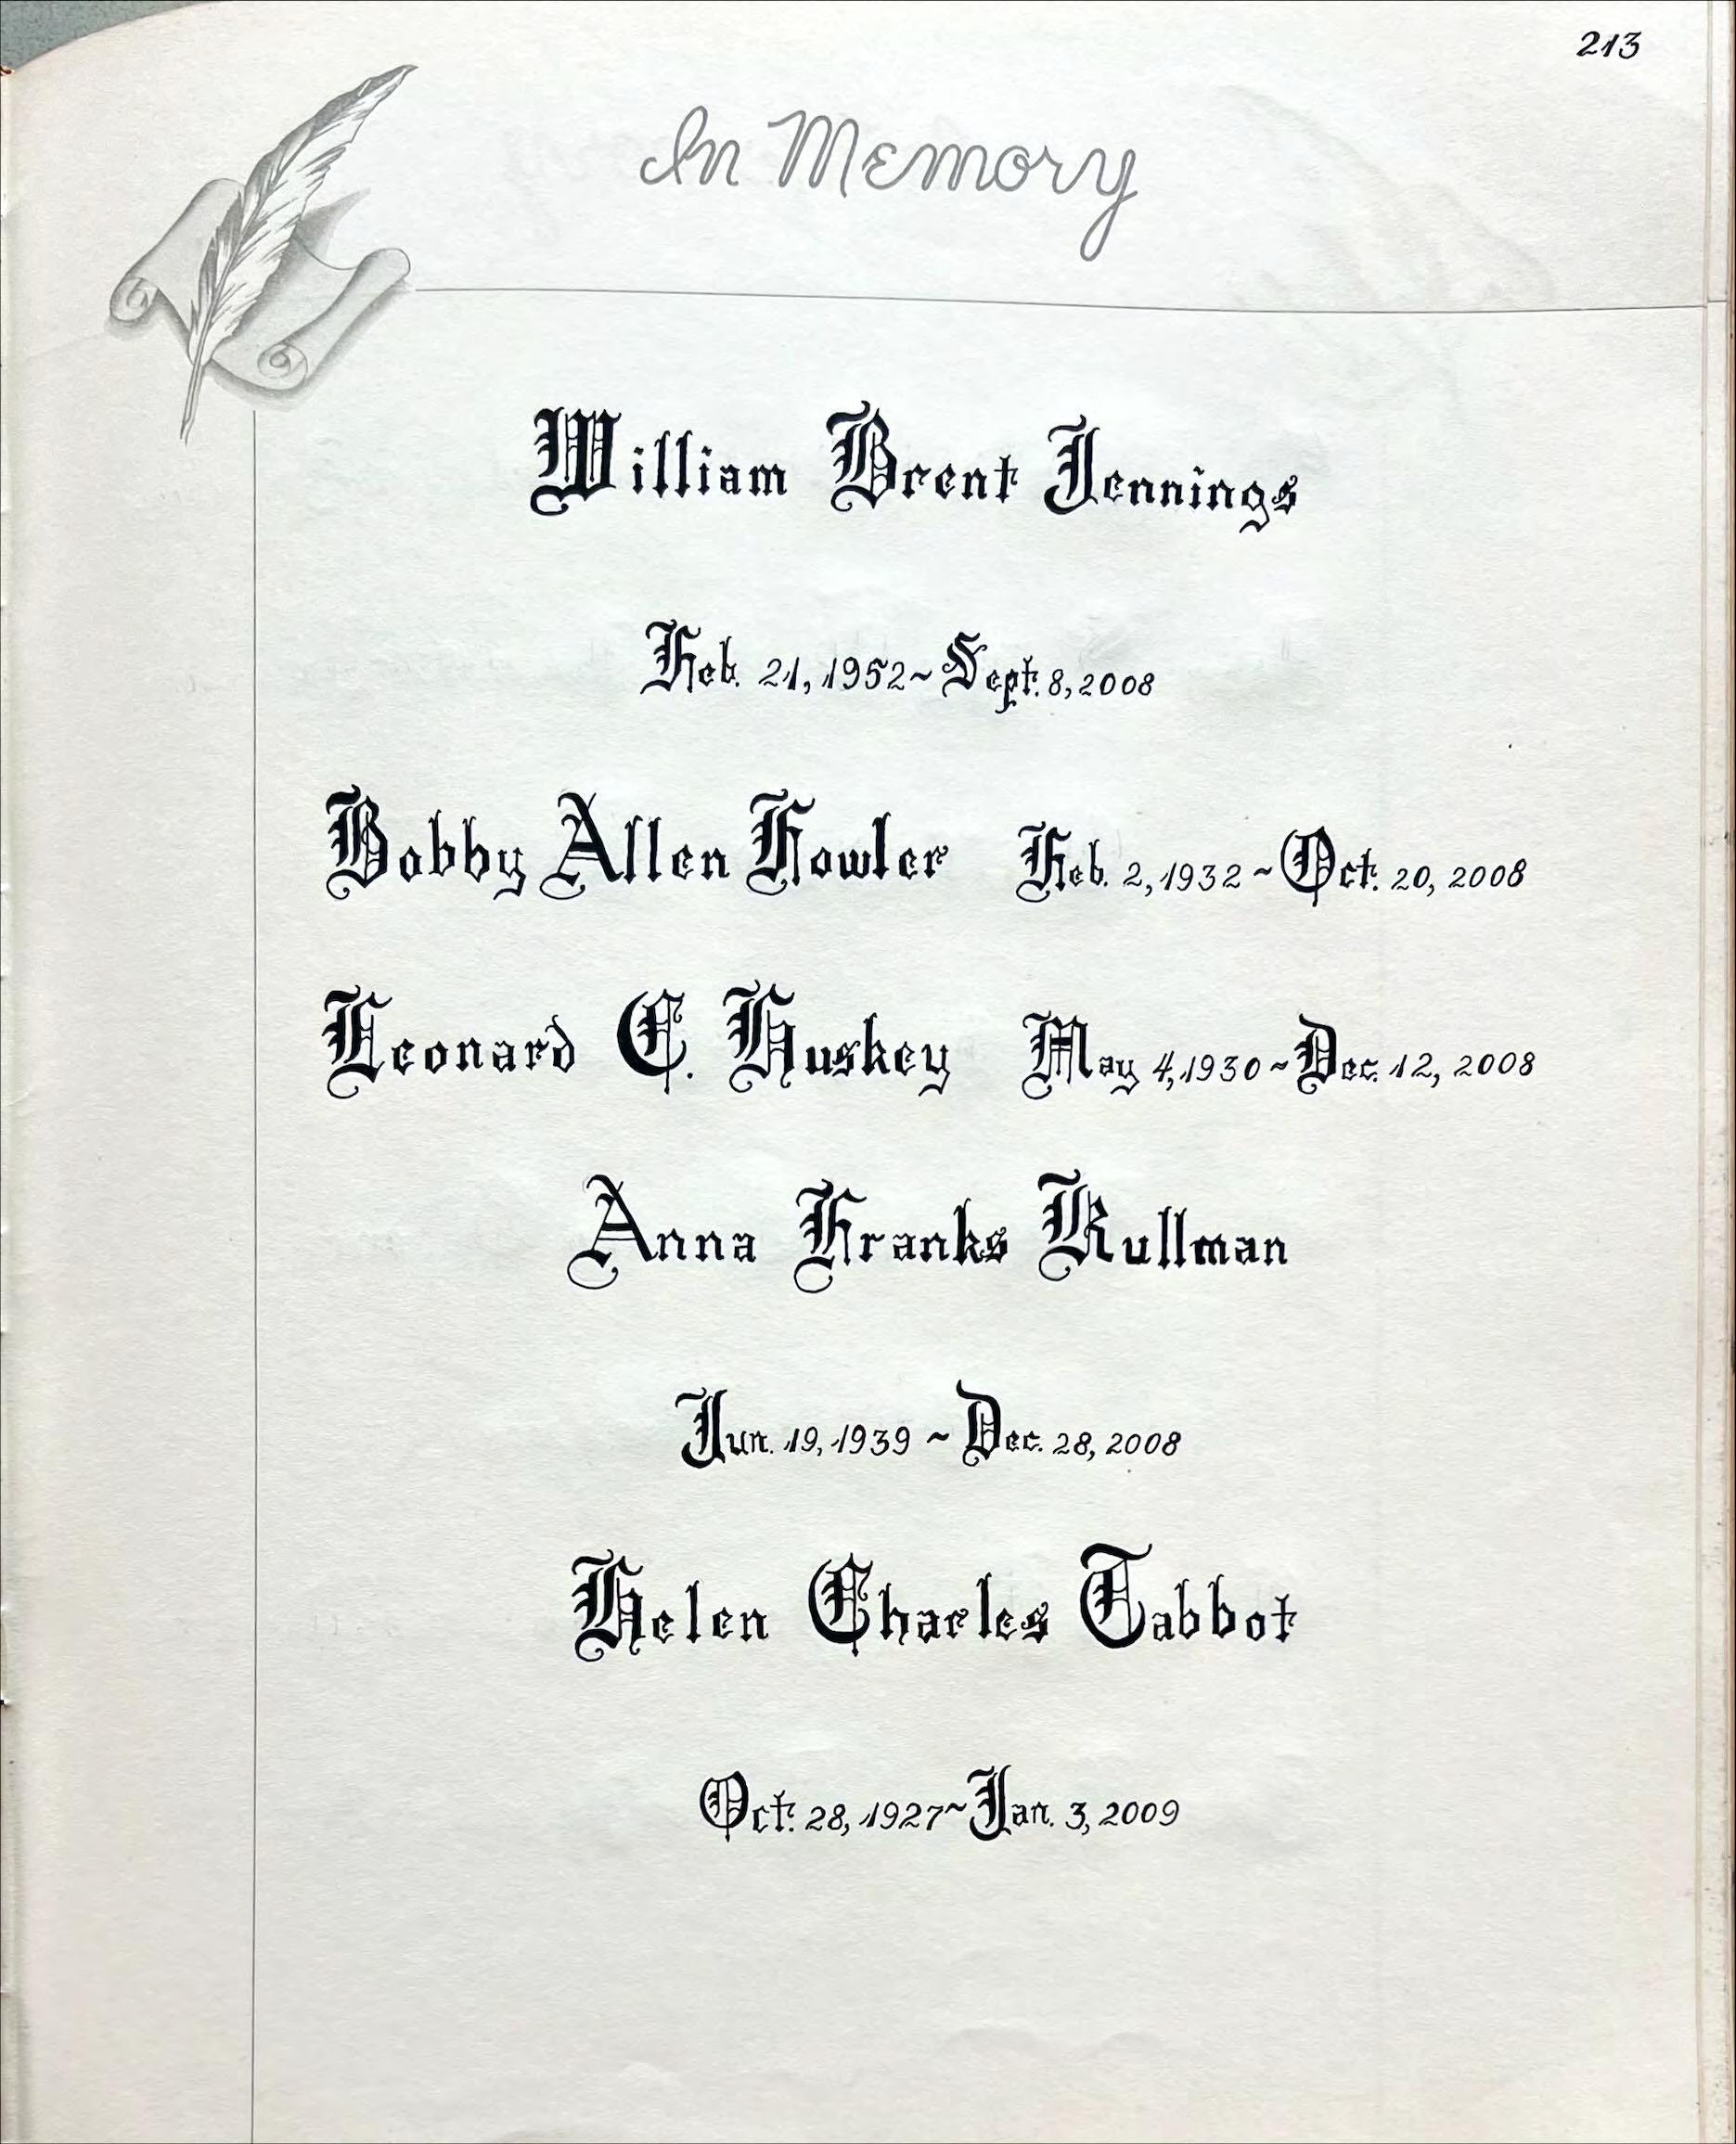 213
In Memory
William Brent Jennings
Feb. 21, 1952~Sept. 8, 2008
Bobby Allen Fowler Feb. 2, 1932~Oct. 20, 2008
Leonard C. Huskey May 4, 1930~Dec. 12, 2008
Anna Franks Rullman
Jun. 19, 1939 ~ Dec. 28, 2008
Helen Charles Tabbot
Oct. 28, 1927~Jan. 3, 2009